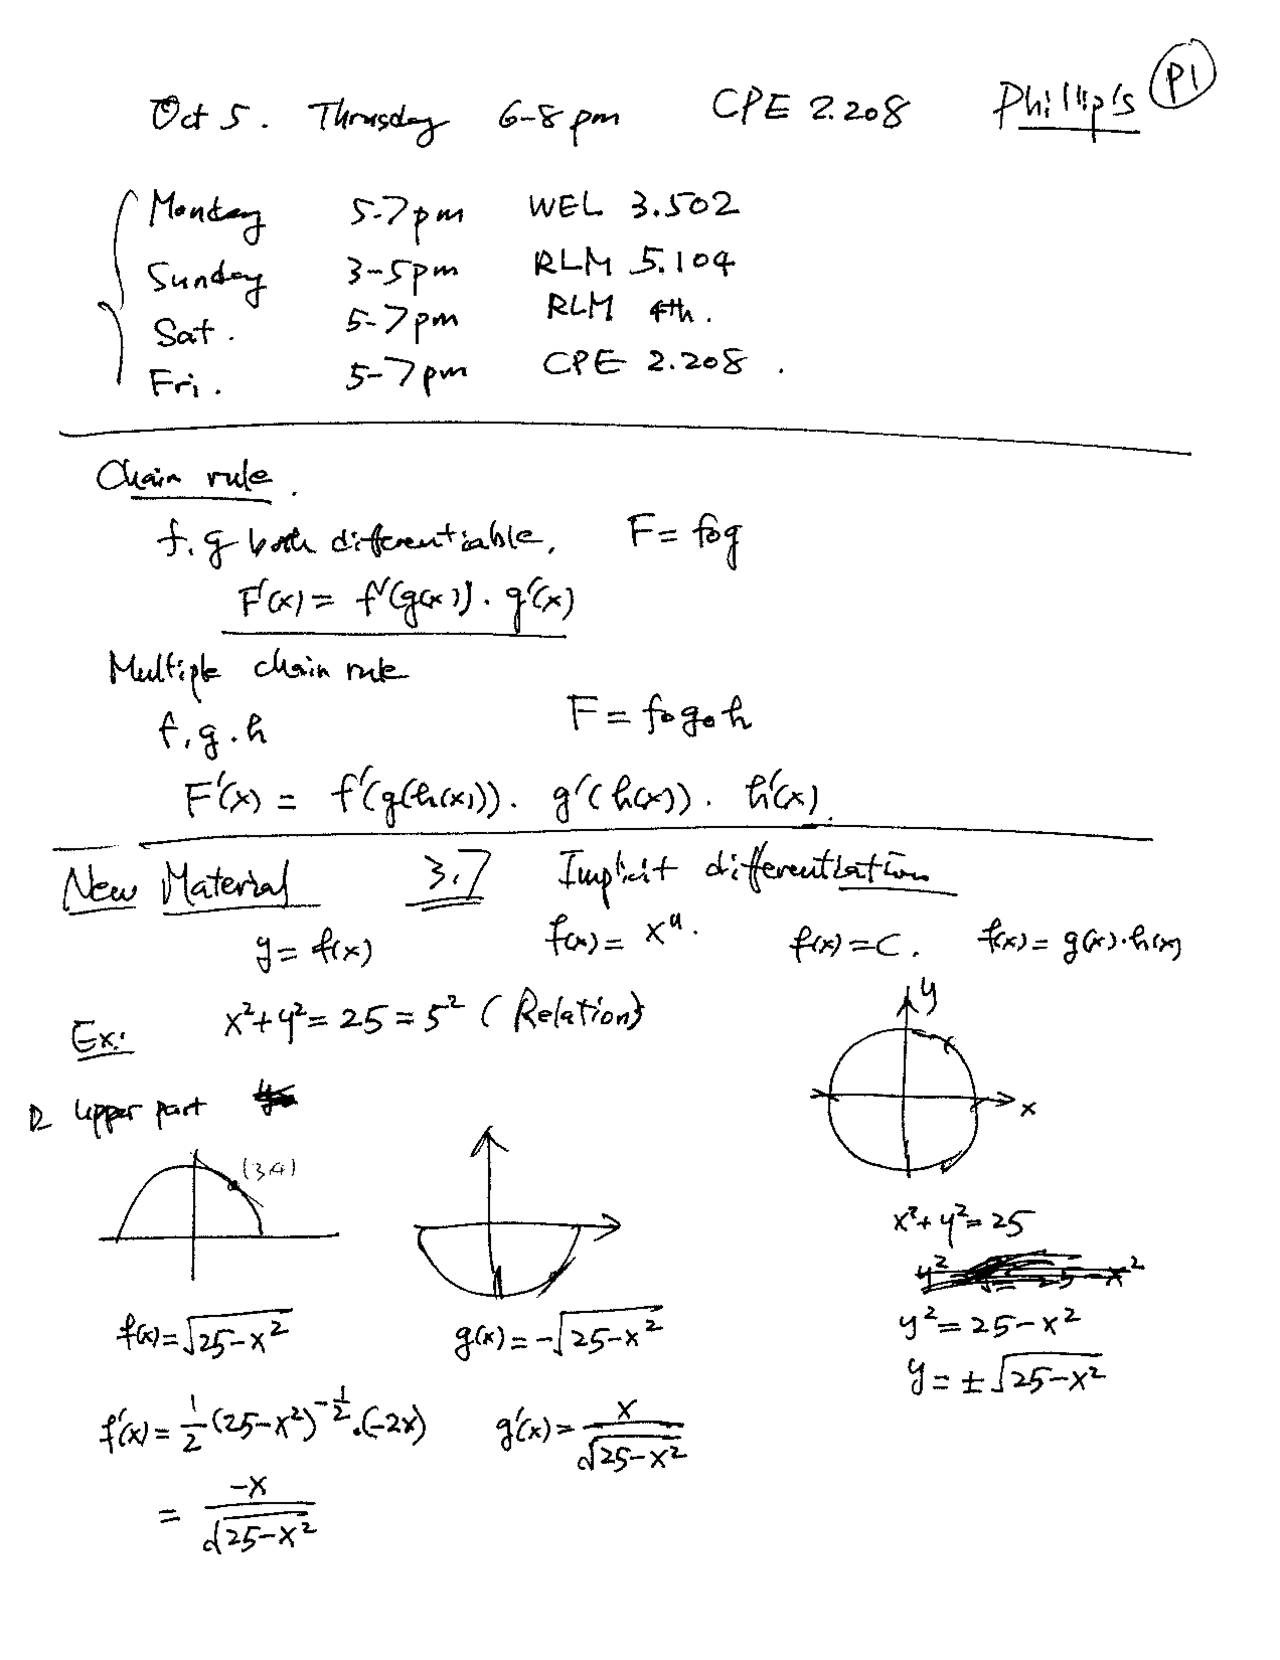 P1
Oct 5. Thrusday 6-8 pm CPE 2.208 Phillip's
Monday 5-7pm WEL 3.502
Sunday 3-5pm RLM 5.104
Sat. 5-7pm RLM 4th.
Fri. 5-7pm CPE 2.208.
Chain rule.
f, g both differentiable, F = f∘g
F'(x) = f'(g(x)) · g'(x)
Multiple chain rule
f, g, h F = f∘g∘h
F'(x) = f'(g(h(x))) · g'(h(x)) · h'(x)
New Material 3.7 Implicit differentiation
y = f(x) f(x) = x⁴. f(x) = C. f(x) = g(x)·h(x)
Ex: x² + y² = 25 = 5² (Relation)
y
x
upper part
(3,4)
x² + y² = 25
y² = 25 - x²
y = ± √(25-x²)
f(x) = √(25-x²) g(x) = -√(25-x²)
f'(x) = 1/2 (25-x²)^(-1/2) · (-2x) g'(x) = x/√(25-x²)
= -x/√(25-x²)